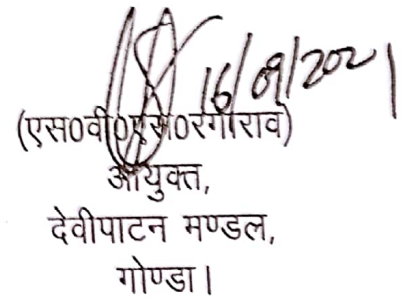 16/09/2021
(एस0वी0एस0रंगाराव)
आयुक्त,
देवीपाटन मण्डल,
गोण्डा।